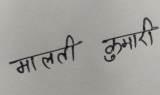 मालती कुमारी